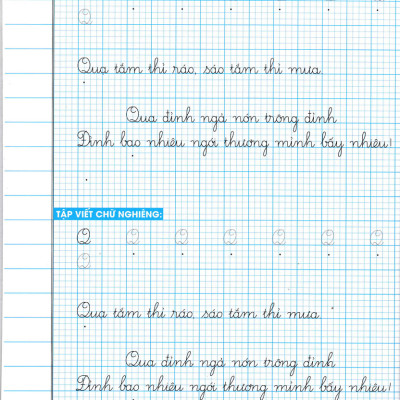 Q
Quạ tắm thì ráo, sáo tắm thì mưa.
Qua đình ngả nón trông đình
Đình bao nhiêu ngói thương mình bấy nhiêu!
TẬP VIẾT CHỮ NGHIÊNG:
Q Q Q Q Q Q Q
Q
Quạ tắm thì ráo, sáo tắm thì mưa.
Qua đình ngả nón trông đình
Đình bao nhiêu ngói thương mình bấy nhiêu!